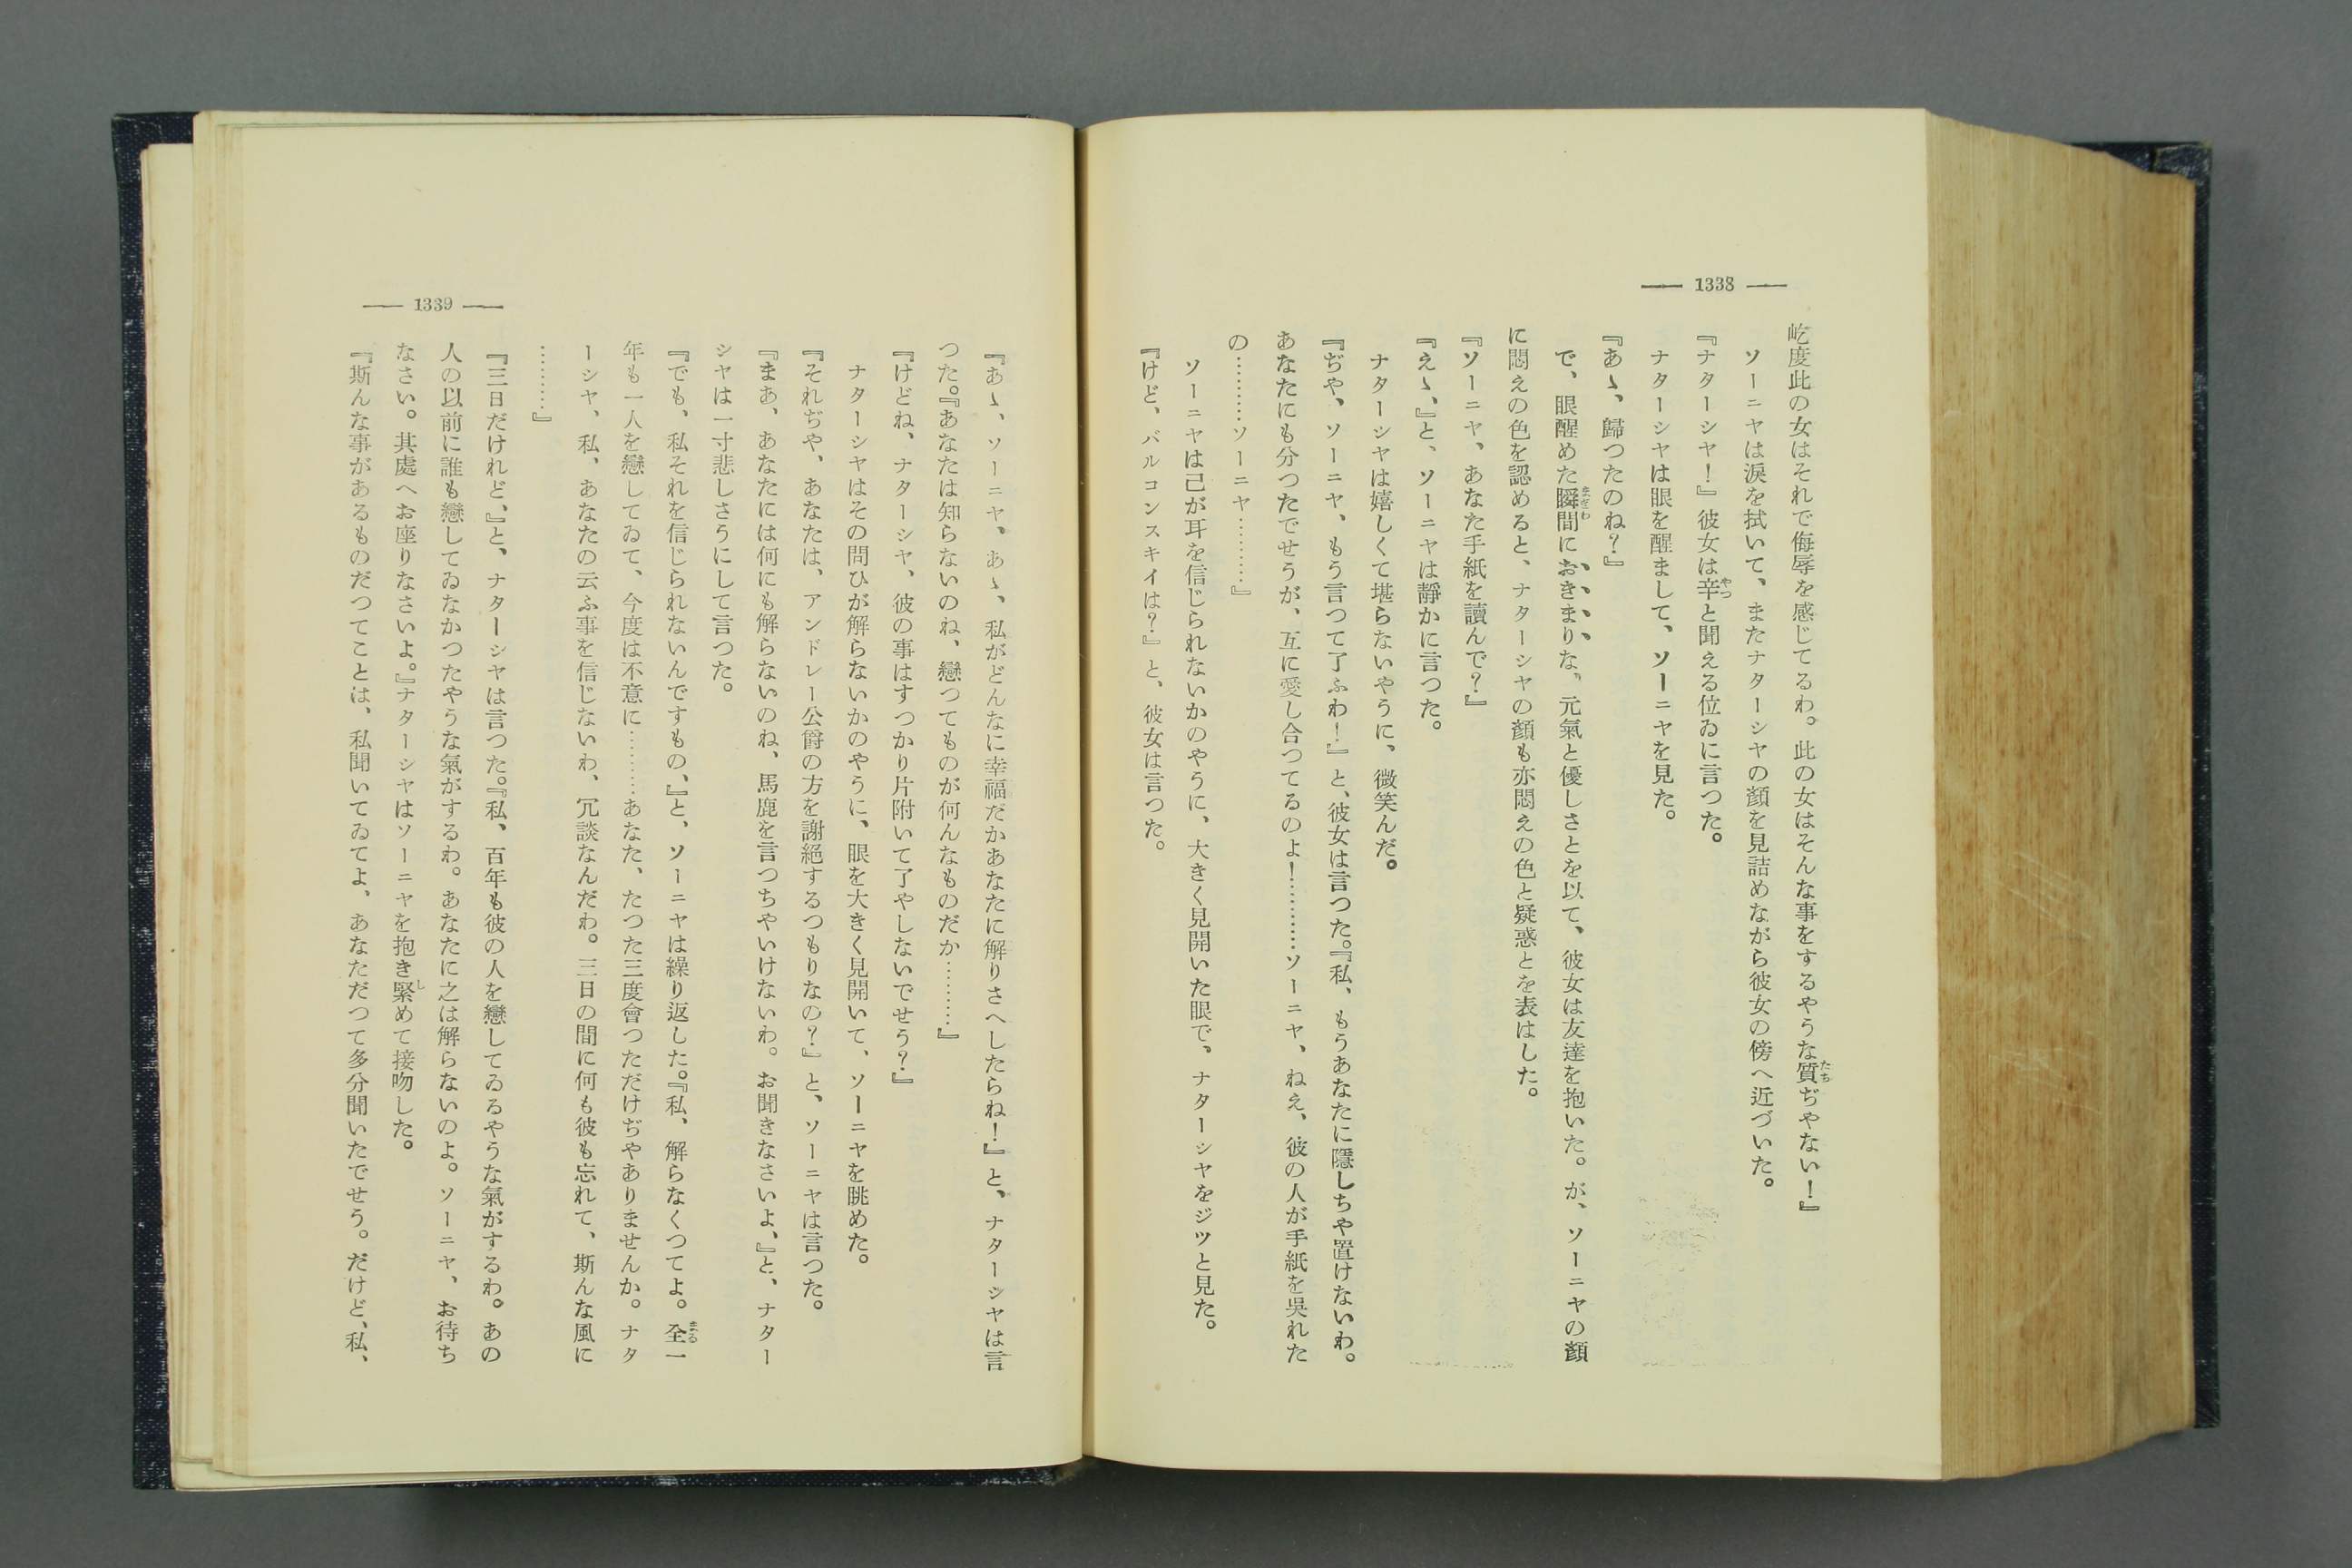 — 1338 —
屹度此の女はそれで侮辱を感じてるわ。此の女はそんな事をするやうな質ぢやない！』
ソーニヤは涙を拭いて、またナターシヤの顏を見詰めながら彼女の傍へ近づいた。
『ナターシヤ！』彼女は辛と聞える位ゐに言つた。
ナターシヤは眼を醒まして、ソーニヤを見た。
『あゝ、歸つたのね？』
で、眼醒めた瞬間におきまりな、元氣と優しさとを以て、彼女は友達を抱いた。が、ソーニヤの顏
に悶えの色を認めると、ナターシヤの顏も亦悶えの色と疑惑とを表はした。
『ソーニヤ、あなた手紙を讀んで？』
『えゝ、』と、ソーニヤは靜かに言つた。
ナターシヤは嬉しくて堪らないやうに、微笑んだ。
『ぢや、ソーニヤ、もう言つて了ふわ！』と、彼女は言つた。『私、もうあなたに隱しちや置けないわ。
あなたにも分つたでせうが、互に愛し合つてるのよ！…………ソーニヤ、ねえ、彼の人が手紙を吳れた
の…………ソーニヤ…………』
ソーニヤは己が耳を信じられないかのやうに、大きく見開いた眼で、ナターシヤをジツと見た。
『けど、バルコンスキイは？』と、彼女は言つた。
— 1339 —
『あゝ、ソーニヤ、あゝ、私がどんなに幸福だかあなたに解りさへしたらね！』と、ナターシヤは言
つた。『あなたは知らないのね、戀つてものが何んなものだか…………』
『けどね、ナターシヤ、彼の事はすつかり片附いて了やしないでせう？』
ナターシヤはその問ひが解らないかのやうに、眼を大きく見開いて、ソーニヤを眺めた。
『それぢや、あなたは、アンドレー公爵の方を謝絕するつもりなの？』と、ソーニヤは言つた。
『まあ、あなたには何にも解らないのね、馬鹿を言つちやいけないわ。お聞きなさいよ、』と、ナター
シヤは一寸悲しさうにして言つた。
『でも、私それを信じられないんですもの、』と、ソーニヤは繰り返した。『私、解らなくつてよ。全一
年も一人を戀してゐて、今度は不意に…………あなた、たつた三度會つただけぢやありませんか。ナタ
ーシヤ、私、あなたの云ふ事を信じないわ、冗談なんだわ。三日の間に何も彼も忘れて、斯んな風に
…………』
『三日だけれど、』と、ナターシヤは言つた。『私、百年も彼の人を戀してゐるやうな氣がするわ。あの
人の以前に誰も戀してゐなかつたやうな氣がするわ。あなたに之は解らないのよ。ソーニヤ、お待ち
なさい。其處へお座りなさいよ。』ナターシヤはソーニヤを抱き緊めて接吻した。
『斯んな事があるものだつてことは、私聞いてゐてよ、あなただつて多分聞いたでせう。だけど、私、